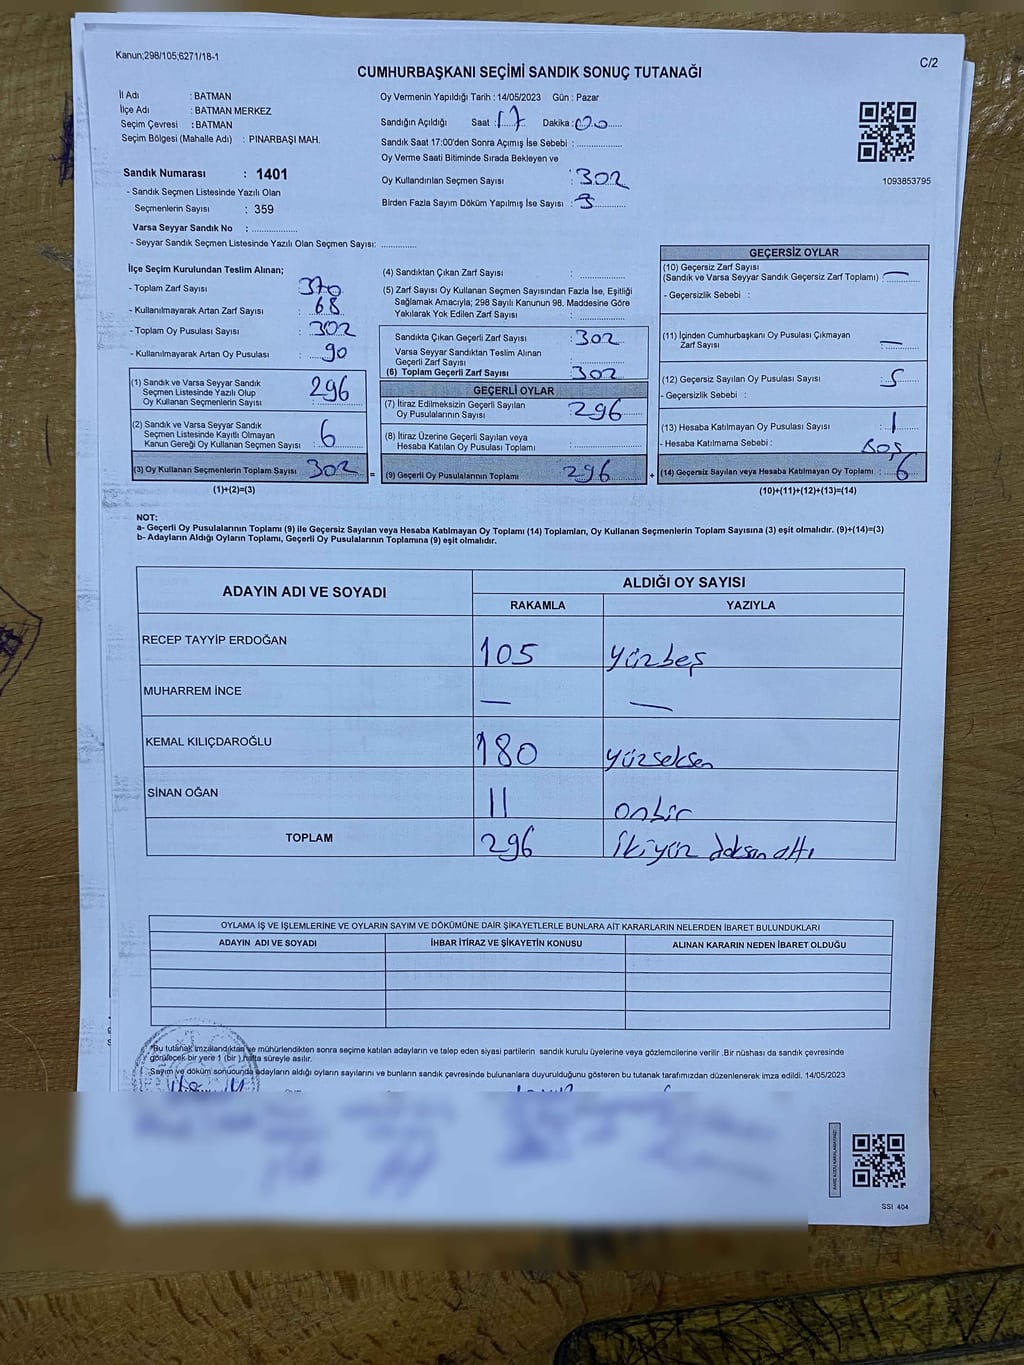 Kanun;298/105;6271/18-1
C/2
CUMHURBAŞKANI SEÇİMİ SANDIK SONUÇ TUTANAĞI
İl Adı : BATMAN
İlçe Adı : BATMAN MERKEZ
Seçim Çevresi : BATMAN
Seçim Bölgesi (Mahalle Adı) : PINARBAŞI MAH.
Sandık Numarası : 1401
- Sandık Seçmen Listesinde Yazılı Olan
Seçmenlerin Sayısı : 359
Varsa Seyyar Sandık No : ..............
- Seyyar Sandık Seçmen Listesinde Yazılı Olan Seçmen Sayısı: ............
Oy Vermenin Yapıldığı Tarih : 14/05/2023 Gün : Pazar
Sandığın Açıldığı Saat : 17 Dakika : 00
Sandık Saat 17:00'den Sonra Açımış İse Sebebi : ..............
Oy Verme Saati Bitiminde Sırada Bekleyen ve
Oy Kullandırılan Seçmen Sayısı : 302
Birden Fazla Sayım Döküm Yapılmış İse Sayısı : 3
1093853795
İlçe Seçim Kurulundan Teslim Alınan;
- Toplam Zarf Sayısı : 370
- Kullanılmayarak Artan Zarf Sayısı : 68
- Toplam Oy Pusulası Sayısı : 302
- Kullanılmayarak Artan Oy Pusulası : 90
(1) Sandık ve Varsa Seyyar Sandık
Seçmen Listesinde Yazılı Olup
Oy Kullanan Seçmenlerin Sayısı : 296
(2) Sandık ve Varsa Seyyar Sandık
Seçmen Listesinde Kayıtlı Olmayan
Kanun Gereği Oy Kullanan Seçmen Sayısı : 6
(3) Oy Kullanan Seçmenlerin Toplam Sayısı : 302 =
(1)+(2)=(3)
(4) Sandıktan Çıkan Zarf Sayısı : ..............
(5) Zarf Sayısı Oy Kullanan Seçmen Sayısından Fazla İse, Eşitliği
Sağlamak Amacıyla; 298 Sayılı Kanunun 98. Maddesine Göre
Yakılarak Yok Edilen Zarf Sayısı : ..............
Sandıkta Çıkan Geçerli Zarf Sayısı : 302
Varsa Seyyar Sandıktan Teslim Alınan
Geçerli Zarf Sayısı : ..............
(6) Toplam Geçerli Zarf Sayısı : 302
GEÇERLİ OYLAR
(7) İtiraz Edilmeksizin Geçerli Sayılan
Oy Pusulalarının Sayısı : 296
(8) İtiraz Üzerine Geçerli Sayılan veya
Hesaba Katılan Oy Pusulası Toplamı : ..............
(9) Geçerli Oy Pusulalarının Toplamı : 296 +
GEÇERSİZ OYLAR
(10) Geçersiz Zarf Sayısı
(Sandık ve Varsa Seyyar Sandık Geçersiz Zarf Toplamı) : —
- Geçersizlik Sebebi :
(11) İçinden Cumhurbaşkanı Oy Pusulası Çıkmayan
Zarf Sayısı : —
(12) Geçersiz Sayılan Oy Pusulası Sayısı : 5
- Geçersizlik Sebebi :
(13) Hesaba Katılmayan Oy Pusulası Sayısı : 1
- Hesaba Katılmama Sebebi : Boş
(14) Geçersiz Sayılan veya Hesaba Katılmayan Oy Toplamı : 6
(10)+(11)+(12)+(13)=(14)
NOT:
a- Geçerli Oy Pusulalarının Toplamı (9) ile Geçersiz Sayılan veya Hesaba Katılmayan Oy Toplamı (14) Toplamları, Oy Kullanan Seçmenlerin Toplam Sayısına (3) eşit olmalıdır. (9)+(14)=(3)
b- Adayların Aldığı Oyların Toplamı, Geçerli Oy Pusulalarının Toplamına (9) eşit olmalıdır.
ADAYIN ADI VE SOYADI
ALDIĞI OY SAYISI
RAKAMLA YAZIYLA
RECEP TAYYİP ERDOĞAN 105 yüzbeş
MUHARREM İNCE — —
KEMAL KILIÇDAROĞLU 180 yüzseksen
SİNAN OĞAN 11 onbir
TOPLAM 296 İkiyüz doksan altı
OYLAMA İŞ VE İŞLEMLERİNE VE OYLARIN SAYIM VE DÖKÜMÜNE DAİR ŞİKAYETLERLE BUNLARA AİT KARARLARIN NELERDEN İBARET BULUNDUKLARI
ADAYIN ADI VE SOYADI İHBAR İTİRAZ VE ŞİKAYETİN KONUSU ALINAN KARARIN NEDEN İBARET OLDUĞU
*Bu tutanak imzalandıktan ve mühürlendikten sonra seçime katılan adayların ve talep eden siyasi partilerin sandık kurulu üyelerine veya gözlemcilerine verilir .Bir nüshası da sandık çevresinde
görülecek bir yere 1 (bir ) hafta süreyle asılır.
Sayım ve döküm sonucunda adayların aldığı oyların sayılarını ve bunların sandık çevresinde bulunanlara duyurulduğunu gösteren bu tutanak tarafımızdan düzenlenerek imza edildi. 14/05/2023
SSI 404